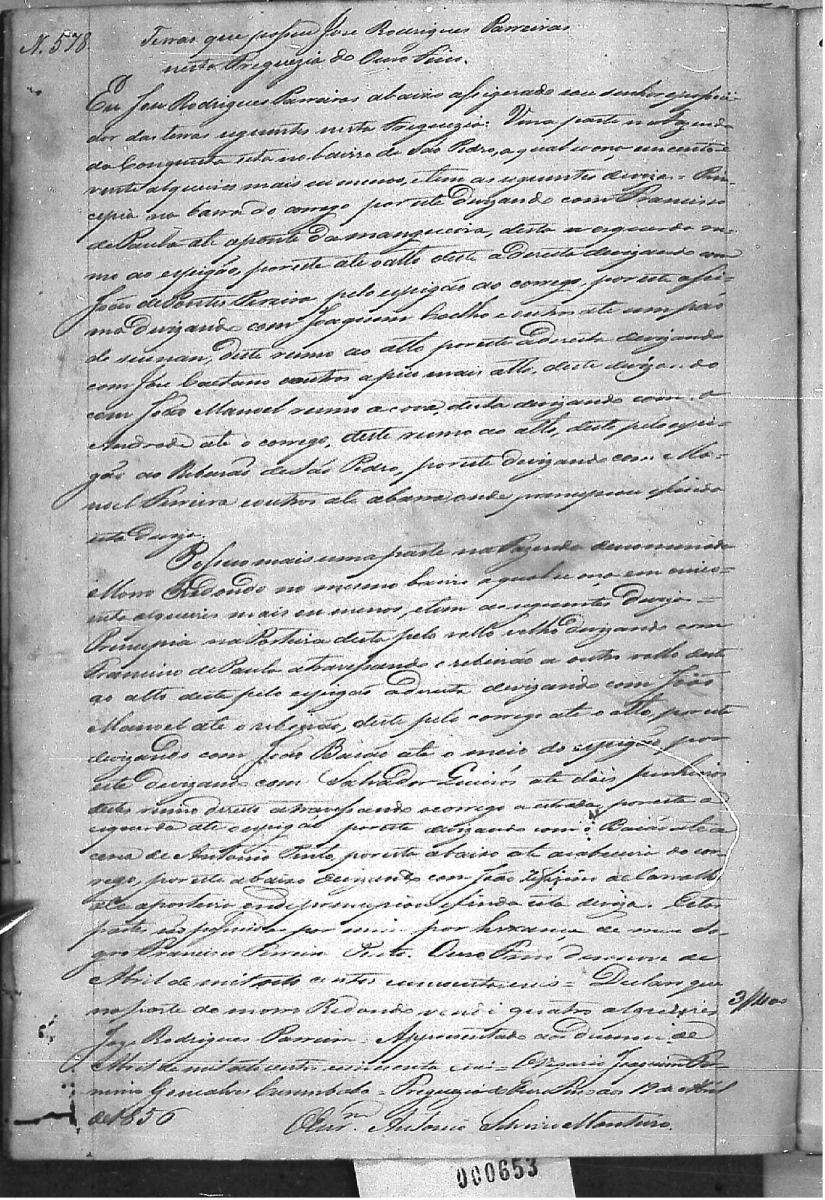 N. 578
Terras que possue Jose Rodrigues Parreiras
nesta Freguezia de Ouro Fino.
Eu Jose Rodrigues Parreiras abaixo assignado sou senhor e possui-
dor das terras seguintes nesta Freguezia: Uma parte na Fazenda
da Conquista sita no bairro de São Pedro, a qual
vinte alqueires mais ou menos, e tem as seguintes deviza = Prin-
cepia na barra do corrego por este devizando com Francisco
de Paula ate a ponte da mangueira, desta a esquerda ru-
mo ao espigão, por este ate o alto deste a dereita devizando com
João de Pontes Pereira pelo espigão ao corrego, por este assi-
ma devizando com Joaquim Coelho e outros ate um páo
de deste rumo ao alto por este a dereita devizando
com Jose Caetano e outros mais alto, deste devizando
com João Manoel rumo a cova, desta devizando com o
Andrade ate o corrego, deste rumo ao alto, deste pelo espi-
gão ao Ribeirão de São Pedro, por este devizando com Ma-
noel Pereira e outros ate a barra onde principiou e finda
esta deviza.
Possuo mais uma parte na Fazenda denominada
Morro Redondo no mesmo bairro a qual
alqueires mais ou menos, e tem as seguintes devizas =
Principia na Porteira desta pelo vallo velho devizando com
Francisco de Paula atravessando o ribeirão a outro vallo deste
ao alto deste pelo espigão a dereita devizando com João
Manoel ate o ribeirão, deste pelo corrego ate o alto, por este
devizando com João Baião ate o meio do espigão, por
este devizando com Salvador Queirós ate dois pinheiros
destes rumo direito atravessando o corrego a estrada, por este a
esquerda ate o espigão por este devizando com o Baião ate a
cerca de Antonio Pinto, por esta abaixo ate a cabeceira do cor-
rego, por este abaixo devizando com João de Carvalho
ate a porteira onde principiou e finda esta deviza. Estas
partes são possuidas por mim por herança de meu So-
gro Francisco Pereira Pinto. Ouro Fino dezenove de
Abril de mil oito centos cincoenta e seis = Declaro que
na parte do morro Redondo vendi quatro alqueires
Joze Rodrigues Parreiras. Appresentado aos dezenove de
Abril de mil oito centos cincoenta e seis = O Vigario Joaquim Fir-
mino Gonçalves Curimbaba = Freguezia de Ouro Fino aos 19 de Abril
de 1856
O Escr.am Antonio Monteiro.
000653